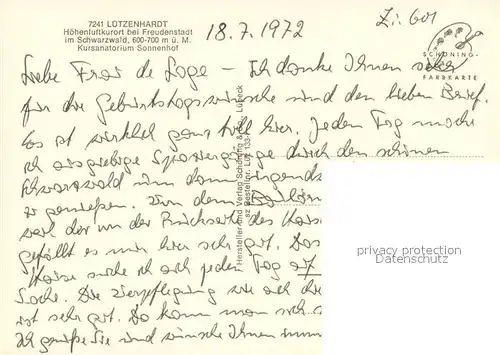 7241 LÜTZENHARDT
Höhenluftkurort bei Freudenstadt
im Schwarzwald, 600-700 m ü. M.
Kursanatorium Sonnenhof
18.7.1972
Z: 601
SCHÖNING
FARBKARTE
Liebe Frau de Loge - Ich danke Ihnen sehr
für die Geburtstagswünsche und den lieben Brief.
Es ist wirklich ganz toll hier. Jeden Tag mache
ich ausgiebige Spaziergänge durch den schönen
Schwarzwald um dann irgends
zu genießen. Von dem
weil der an der Rückseite des
gefällt es mir hier sehr gut. Das
suche ich auch jeden Tag auf
Sache. Die Verpflegung wie auch die
ist sehr gut. Da kann man sich
Ich grüße Sie und wünsche Ihnen
Hersteller und Verlag Schöning & Lübeck
Besteller: Lüt 133
privacy protection
www.ansichtskartenversand.com